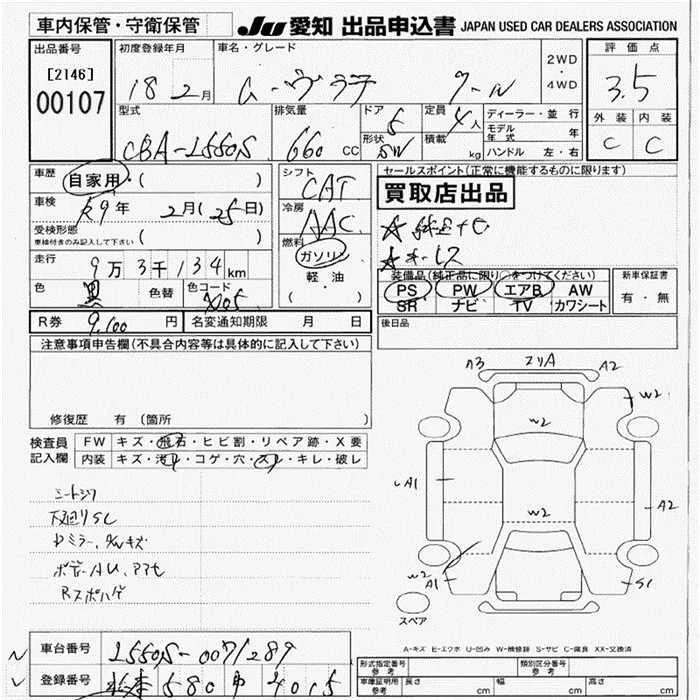 車内保管・守衛保管 JU 愛知 出品申込書 JAPAN USED CAR DEALERS ASSOCIATION
出品番号 初度登録年月 車名・グレード 2WD・4WD 評価点
[2146]
00107
18 2月 ムーヴラテ クール 3.5
型式 排気量 ドア 5 定員 4人 ディーラー・並行 外装 内装
CBA-L550S 660 CC 形状 SW 積載 kg モデル年式 年 C C
ハンドル 左・右
車歴 自家用・( )
シフト CAT
セールスポイント(正常に機能するものに限ります)
買取店出品
車検 R9年 2月(25日)
冷房 AAC
受検形態 ( )
車検付きのみ記入して下さい
燃料 ガソリン・軽・油 ( )
走行 9万3千134km
装備品(純正品に限り○をつけてください) 新車保証書
色 黒 色替 色コード X05
PS PW エアB AW 有・無
SR ナビ TV カワシート
R券 9,100 円 名変通知期限 月 日 後日品
注意事項申告欄(不具合内容等は具体的に記入して下さい)
修復歴 有 (箇所 )
検査員 FW キズ・飛石・ヒビ割・リペア跡・X要
記入欄 内装 キズ・汚レ・コゲ・穴・スレ・キレ・破レ
シートシワ
下廻りSC
ボデーAU、アマモ
A3 エリA A2
W2 W2
A1 A2
W2
W2
A1 S1
スペア
A-キズ E-エクボ U-凹み W-補修跡 S-サビ C-腐食 XX-交換済
車台番号 L550S-0071289
登録番号 580 4015
形式指定番号 参考 類別区分番号 参考
車庫証明用 参考 長さ cm 幅 cm 高さ cm